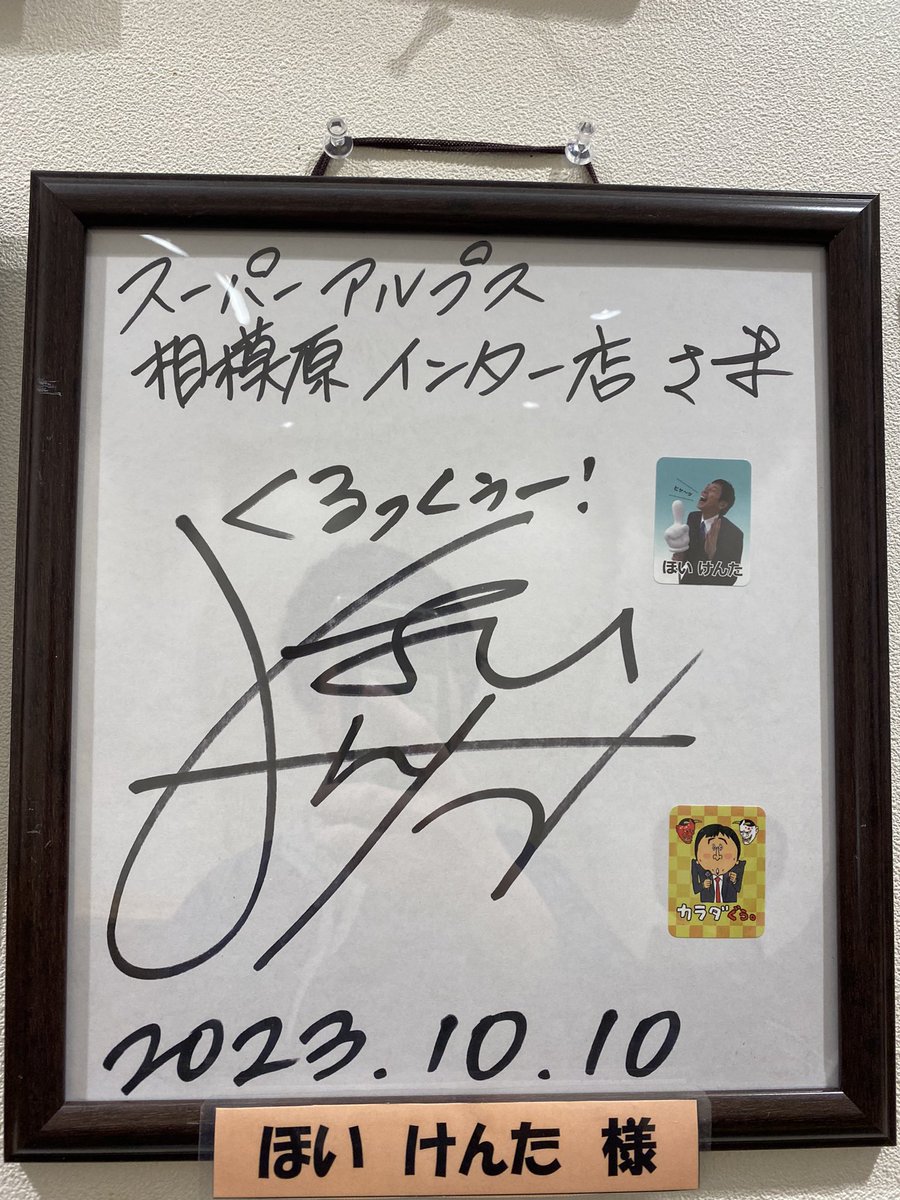 スーパーアルプス
相模原インター店さま
くるっくぅー!
ほい けんた
ほい
けんた
カラダぐぅ。
2023.10.10
ほい けんた 様